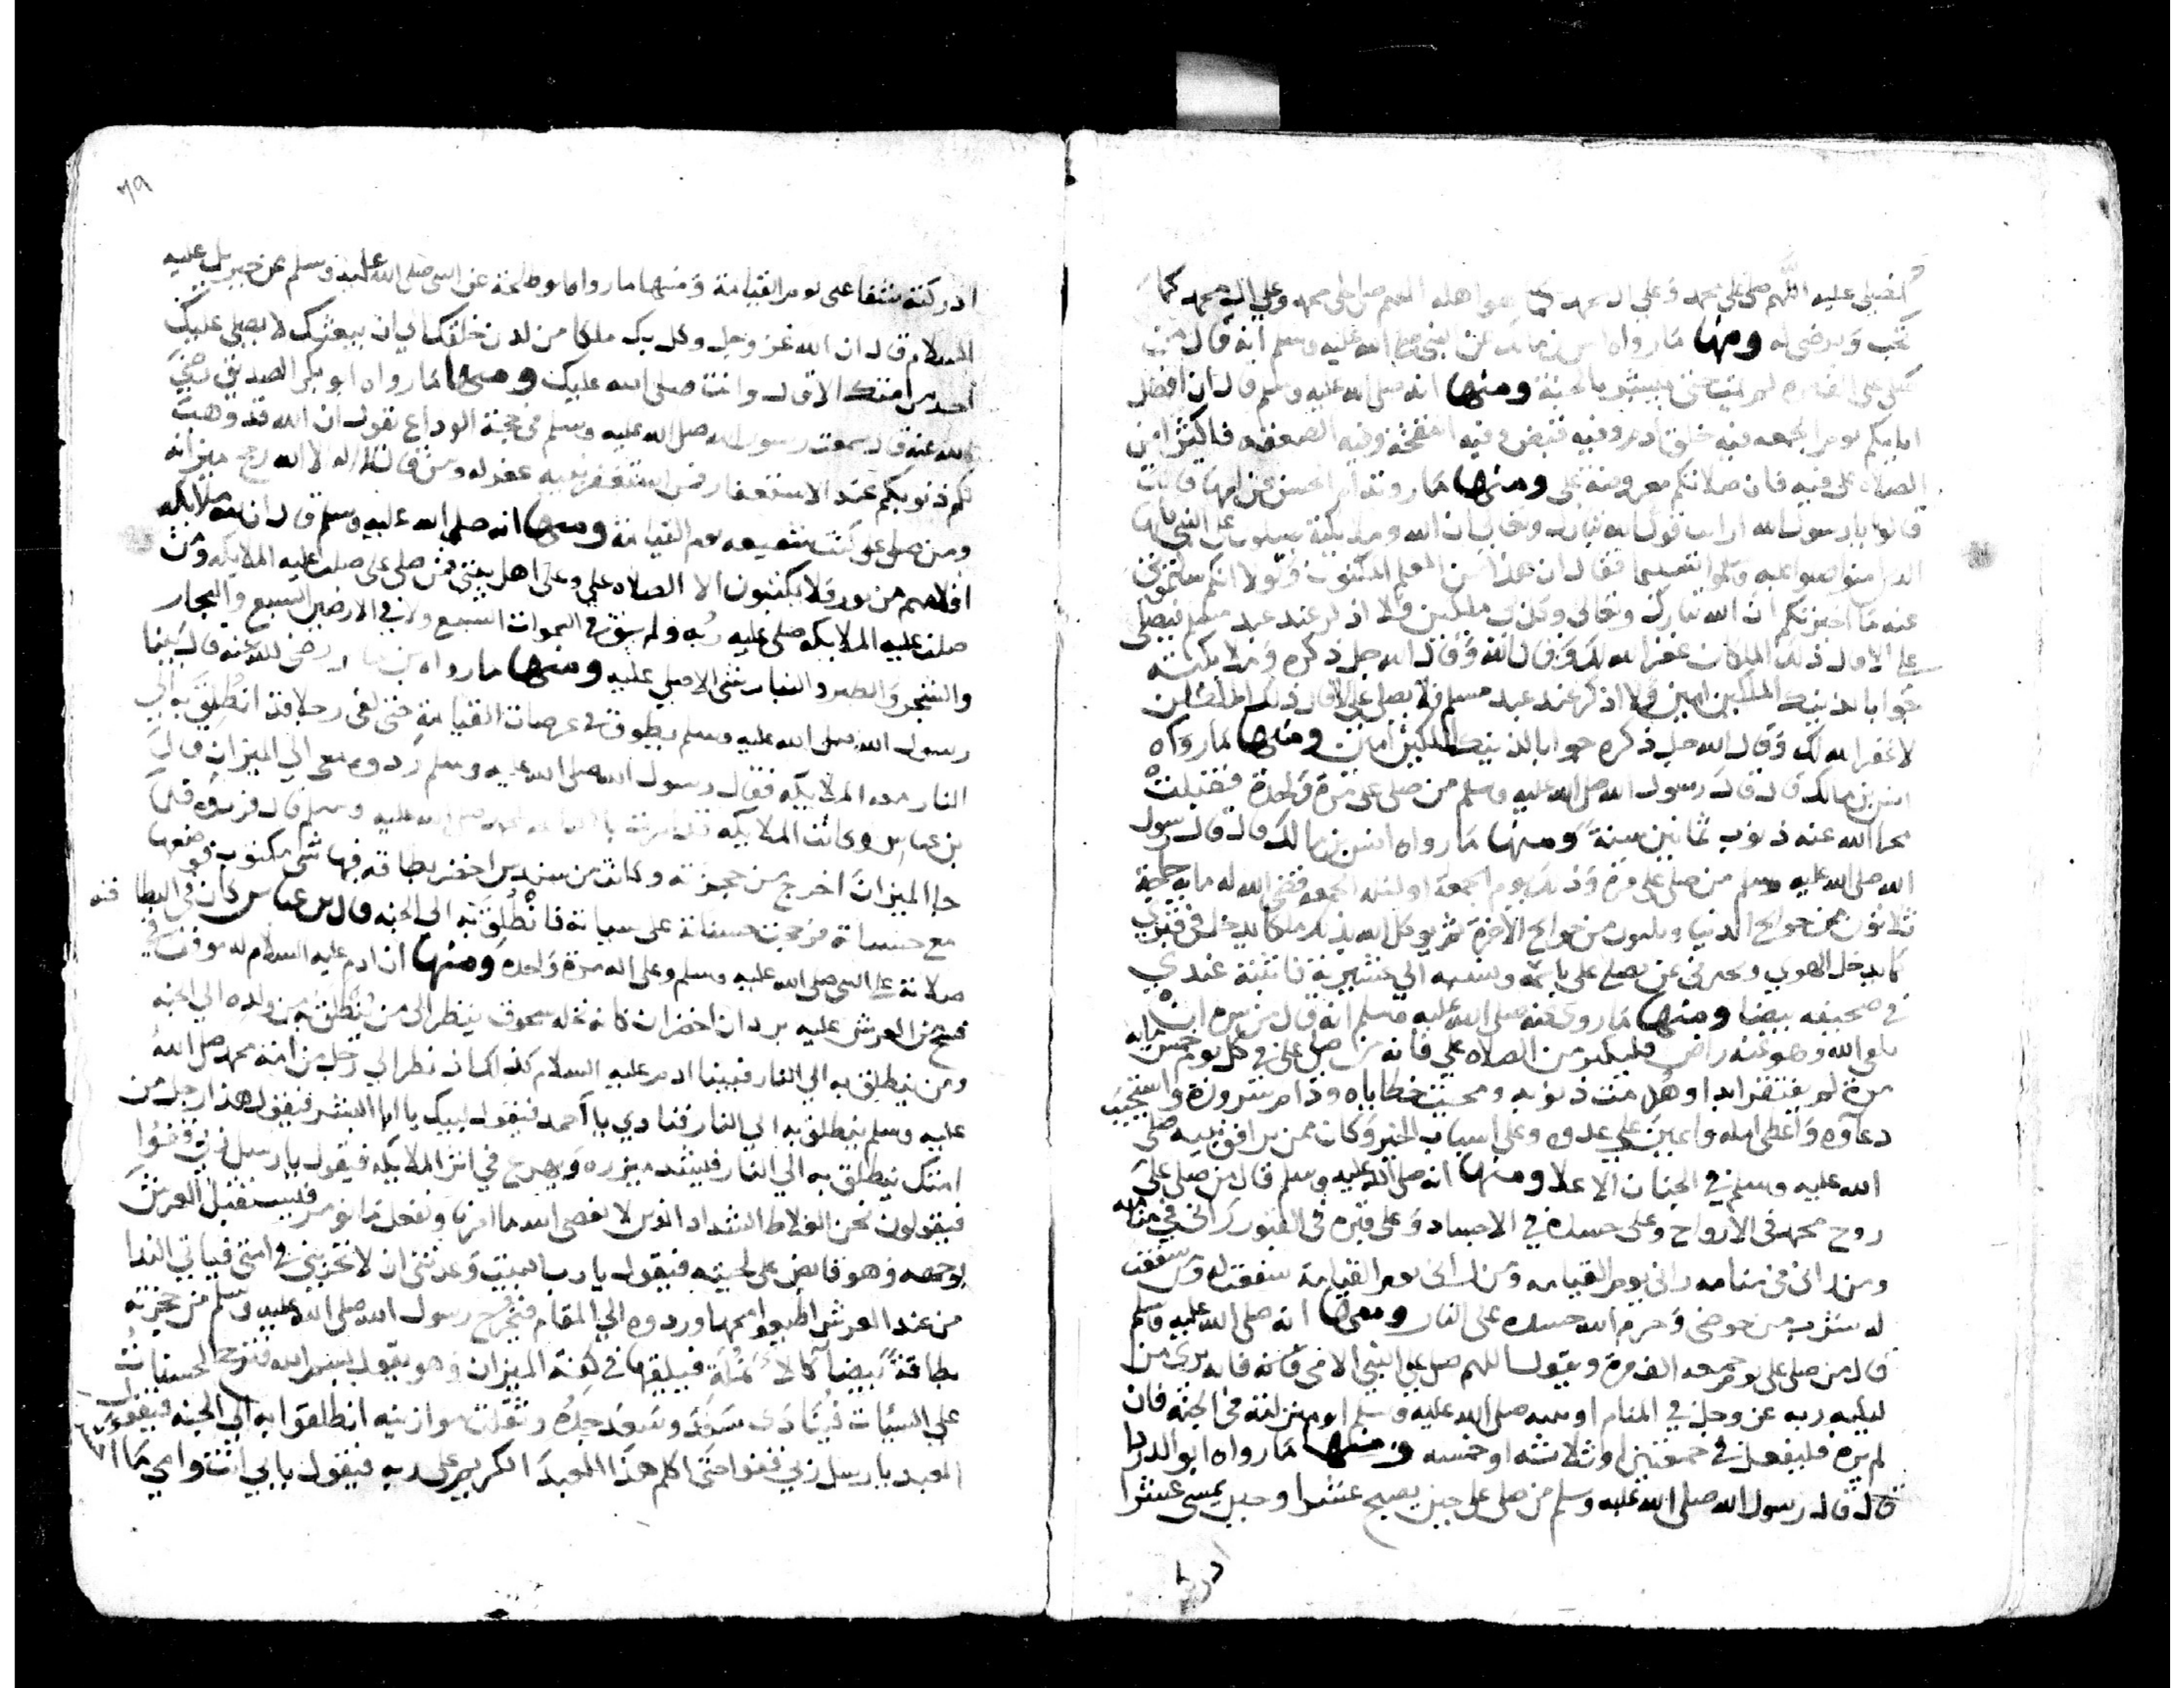 نصلي عليه اللهم صل على محمد وعلى ال محمد كما هو اهله اللهم صل على محمد وعلى ال محمد كما
تحب وترضى له ومنها ما رواه انس بن مالك عن النبي صلى الله عليه وسلم انه قال من
صلى علي الف مره لم يمت حتى يبشر بالجنة ومنها انه صلى الله عليه وسلم قال ان افضل
ايامكم يوم الجمعه فيه خلق ادم وفيه قبض وفيه النفخة وفيه الصعقه فاكثروا من
الصلاه علي فيه فان صلاتكم معروضة علي ومنها ما روته ام الحسن عن ابيها قالت
قالوا يا رسول الله ارايت قول الله تبارك وتعالى ان الله وملائكته يصلون على النبي يا ايها
الذين امنوا صلوا عليه وسلموا تسليما فقال ان هذا من العلم المكنون ولولا انكم سالتموني
عنه ما اخبرتكم ان الله تبارك وتعالى وكل بي ملكين فلا اذكر عند عبد مسلم فيصلي
علي الا قال ذلك الملكان غفر الله لك وقال الله جل ذكره وملائكته
جوابا لذينك الملكين امين ولا اذكر عند عبد مسلم فلا يصلي علي الا قال ذلك الملكان
لا غفر الله لك وقال الله جل ذكره جوابا لذينك الملكين امين ومنها ما رواه
انس بن مالك قال قال رسول الله صلى الله عليه وسلم من صلى علي مرة واحدة فتقبلت
محا الله عنه ذنوب ثمانين سنة ومنها ما رواه انس بن مالك قال قال رسول
الله صلى الله عليه وسلم من صلى علي يوم الجمعة او ليلة الجمعه قضى الله له مايه حاجة
ثلاثون من حوايج الدنيا وسبعون من حوايج الاخرة ثم يوكل الله بذلك ملكا يدخل في قبري
كما يدخل الهدي ويخبرني عن يصلي علي باسمه ونسبه الى عشيرته فاثبته عندي
في صحيفه بيضا ومنها ما روي عنه صلى الله عليه وسلم انه قال من سره ان
يلقى الله وهو عنه راض فليكثر من الصلاه علي فانه من صلى علي في كل يوم خمس مايه
مرة لم يفتقر ابدا وهدمت ذنوبه ومحيت خطاياه ودام سروره واستجيب
دعاوه واعطي امله واعين على عدوه وعلى اسباب الخير وكان ممن يرافق نبيه صلى
الله عليه وسلم في الجنان الاعلا ومنها انه صلى الله عليه وسلم قال من صلى على
روح محمد في الارواح وعلى جسده في الاجساد وعلى قبره في القبور راني في منامه
ومن راني في منامه راني يوم القيامه ومن راني يوم القيامة شفعت له ومن شفعت
له شرب من حوضي وحرم الله جسده على النار ومنها انه صلى الله عليه وسلم
قال من صلى علي يوم جمعه الف مرة ويقول اللهم صل على النبي الامي فانه يرى من
ليلته ربه عز وجل في المنام او نبيه صلى الله عليه وسلم او منزلته في الجنة فان
لم يره فليفعل في جمعتين او ثلاثه او خمسه ومنها ما رواه ابو الدردا
قال قال رسول الله صلى الله عليه وسلم من صلى علي حين يصبح عشرا وحين يمسي عشرا
ادركته
ادركته شفاعتي يوم القيامة ومنها ما رواه ابو طلحة عن النبي صلى الله عليه وسلم عن جبريل عليه
السلام قال ان الله عز وجل وكل بك ملكا من لدن خلقك الى ان يبعثك لا يصلي عليك
احد من امتك الا قال وانت صلى الله عليك ومنها ما رواه ابو بكر الصديق رضي
الله عنه قال سمعت رسول الله صلى الله عليه وسلم في حجة الوداع يقول ان الله قد وهب
لكم ذنوبكم عند الاستغفار فمن استغفر بنيه غفر له ومن قال لا اله الا الله رجح ميزانه
ومن صلى علي كنت شفيعه يوم القيامة ومنها انه صلى الله عليه وسلم قال ان لله ملايكه
اقلامهم من نور فلا يكتبون الا الصلاه علي وعلى اهل بيتي فمن صلى علي صلت عليه الملايكه ومن
صلت عليه الملايكه صلى عليه ربه ولم يبق في السموات السبع ولا في الارضين السبع والبحار
والشجر والطير والنبات شي الا صلى عليه ومنها ما رواه بن عباس رضي الله عنه قال بينما
رسول الله صلى الله عليه وسلم يطوف في عرصات القيامة حتى لقى رجلا قد انطلق به الى
النار معه الملايكه فقال رسول الله صلى الله عليه وسلم ردوه معي الى الميزان قال
بن عباس وكانت الملايكه قد امرت بالطاعه لمحمد صلى الله عليه وسلم قال فردوه فلما
جا الميزان اخرج من حجزته وكانت من سندس اخضر بطاقه فيها شي مكتوب فوضعها
مع حسناته فرجحت حسناته على سياته فانطلق به الى الجنه قال بن عباس كان في البطاقه
صلاته على النبي صلى الله عليه وسلم وعلى اله مرة واحده ومنها ان ادم عليه السلام له موقف في
فسح من العرش عليه بردان اخضران كانه نخله سحوق ينظر الى من ينطلق به من ولده الى الجنه
ومن ينطلق به الى النار فبينا ادم عليه السلام كذلك اذ نظر الى رجل من امة محمد صلى الله
عليه وسلم ينطلق به الى النار فنادي يا احمد فيقول لبيك يا ابا البشر فيقول هذا رجل من
امتك ينطلق به الى النار فيشد ميزره ويهرع في اثر الملايكه فيقول يا رسل ربي قفوا
فيقولون نحن الغلاظ الشداد الذين لا نعصي الله ما امرنا ونفعل ما نومر فيستقبل العرش
بوجهه وهو قابض على لحيته فيقول يا رب اليس وعدتني ان لا تخزيني في امتي فياتي الندا
من عند العرش اطيعوا محمدا وردوه الى المقام فيخرج رسول الله صلى الله عليه وسلم من حجزته
بطاقة بيضا كالانملة فيلقيها في كفة الميزان وهو يقول بسم الله فترجح الحسنات
على السيات فينادى سعد وسعد جده وثقلت موازينه انطلقوا به الى الجنه فيقول
العبد يا رسل ربي قفوا حتى اكلم هذا العبد الكريم على ربه فيقول بابي انت وامي ما